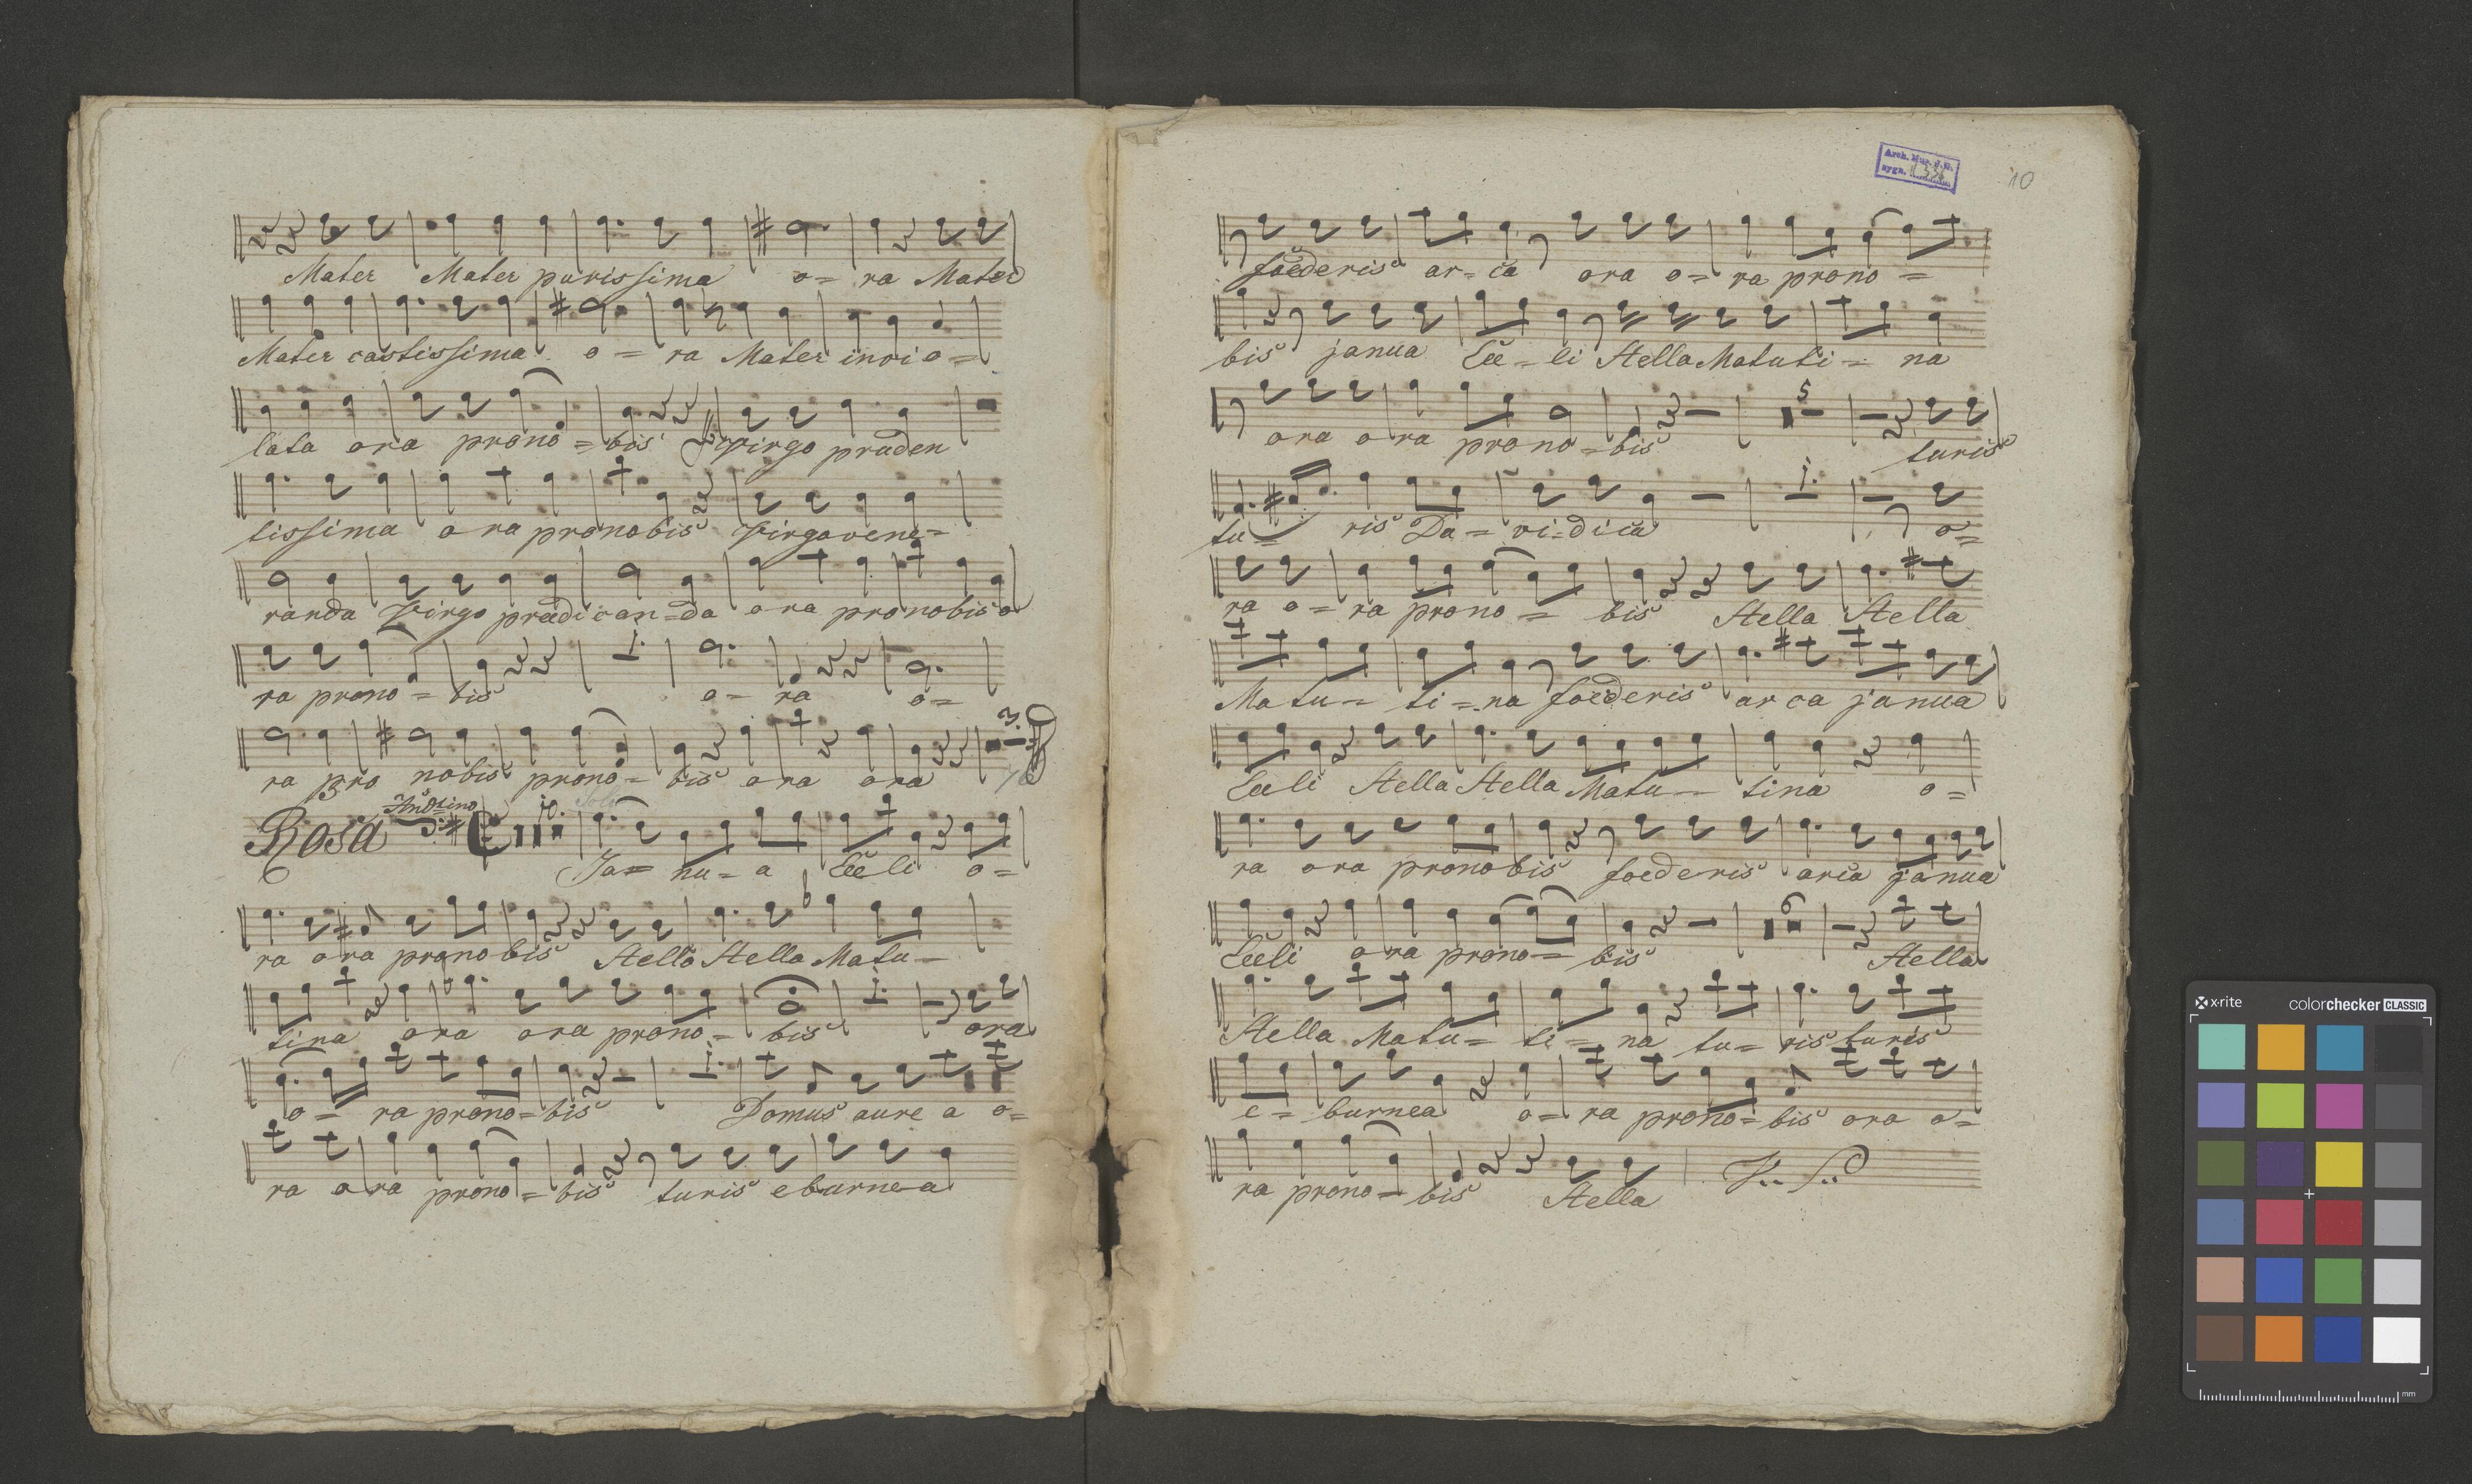 Mater Mater purissima o = ra Mater
Mater castissima o = ra Mater invio =
lata ora prono = bis Virgo pruden
tissima ora pronobis Virgo vene =
randa Virgo prædican = da ora pronobis o
ra prono = bis 1. o = ra o =
ra pro nobis prono = bis ora ora 3.
Rosa Andtino 10. Solo Ja = nu = a Cœli o =
ra ora pronobis Stella Stella Matu =
tina ora ora prono = bis 1. ora
o = ra prono = bis 1. Domus aure a o =
ra ora prono = bis turis eburnea
Arch. Mus. J.G.
sygn.
10
foederis ar = ca ora o = ra prono =
bis janua Cœ = li Stella Matuti = na
ora ora prono = bis 5 turis
tu = ris Da = vi = dica 1. o =
ra o = ra prono = bis Stella Stella
Matu = ti = na foederis arca janua
Cœli Stella Stella Matu = tina o =
ra ora pronobis foederis arca janua
Cœli ora prono = bis 6 Stella
Stella Matu = ti = na tu = ris turis
e = burnea o = ra prono = bis ora o =
ra prono = bis Stella V: S:
x·rite colorchecker CLASSIC
mm